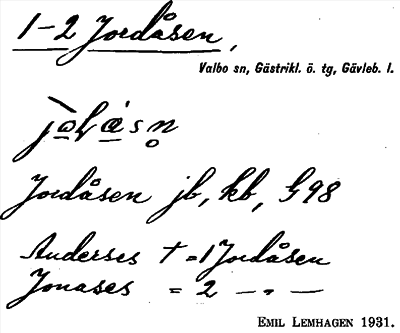 1-2 Jordåsen,
Valbo sn, Gästrikl. ö. tg, Gävleb. l.
Jordåsen jb, kb, G98
Anderses † = 1 Jordåsen
Jonases = 2 — " —
EMIL LEMHAGEN 1931.